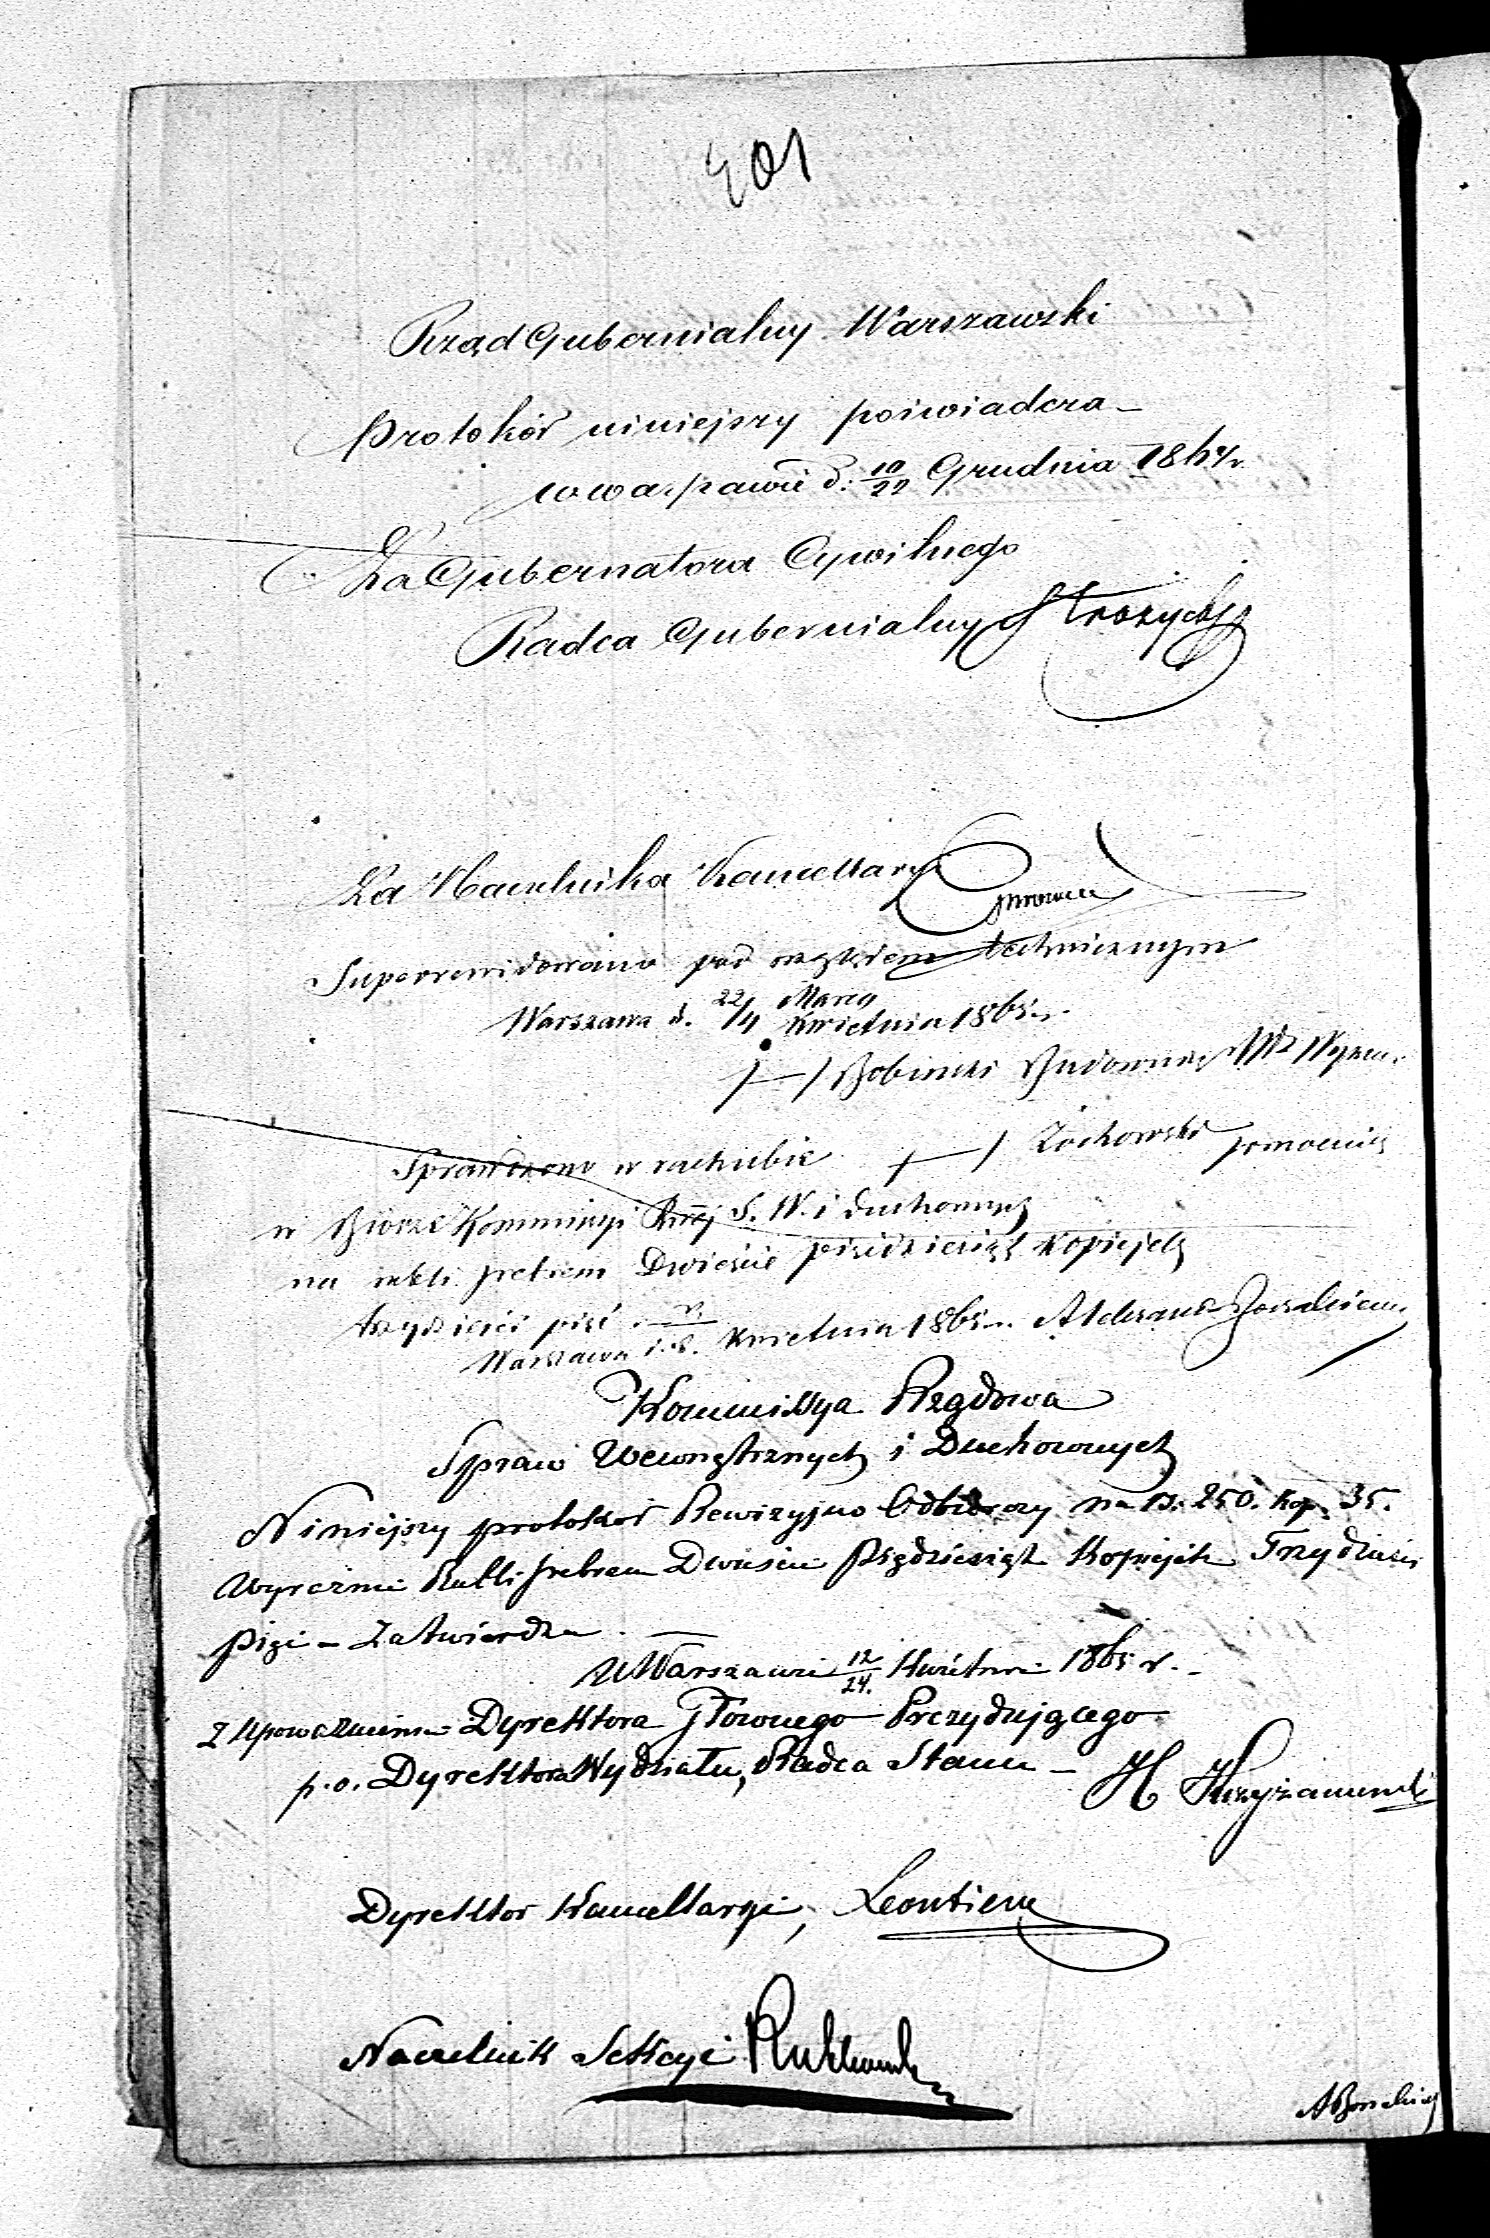 201
Rząd Gubernialny Warszawski
Protokół niniejszy poświadcza
w Warszawie d: 10/22 Grudnia 1864 r.
Za Gubernatora Cywilnego
Radca Gubernialny
Za Naczelnika Kancellaryi
Superrewidowano pod względem technicznym
Warszawa d. 22/4 Marca Kwietnia 1865 r.
Sprawdzono w rachubie /—/ Żochowski pomocnik
w Biórze Kommissyi Rząj S. W. i Duchownych
na rubli srebrem Dwieście pięćdziesiąt kopiejek
trzydzieści pięć
Warszawa Kwietnia 1865 r.
Kommissya Rządowa
Spraw Wewnętrznych i Duchownych
Niniejszy protokół Rewizyjno Odbiorczy na rs. 250. kop. 35.
Wyraźnie Rubli srebrem Dwieście Pięćdziesiąt Kopiejek Trzydzieści
Pięć – Zatwierdza. —
w Warszawie 12/24. Kwietnia 1865 r. -
Z Upoważnienia Dyrektora Głównego Prezydującego
p.o. Dyrektora Wydziału, Radca Stanu – H Krzyżanowski
Dyrektor Kancellaryi,
Naczelnik Sekcyi